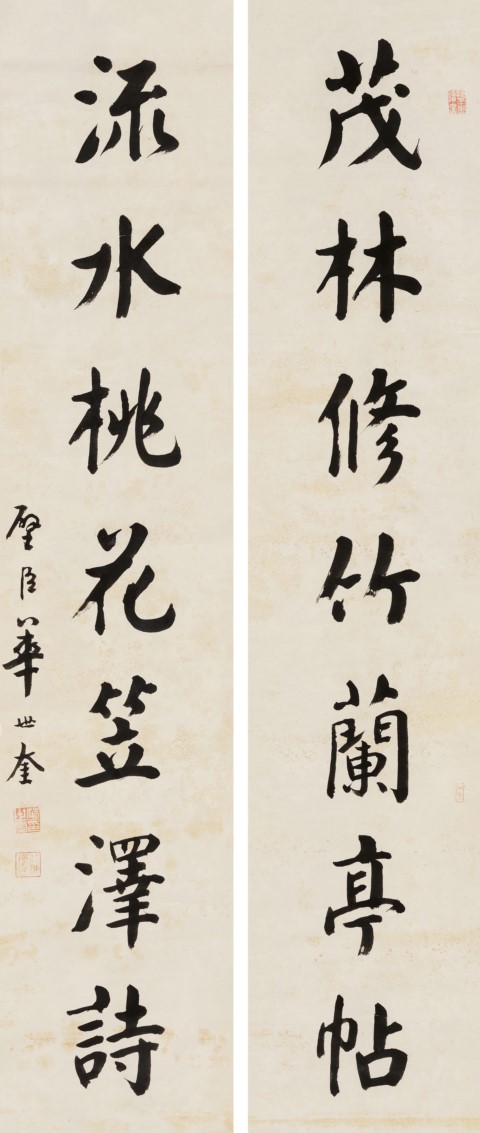 茂林修竹蘭亭帖
流水桃花笠澤詩
壁臣華世奎